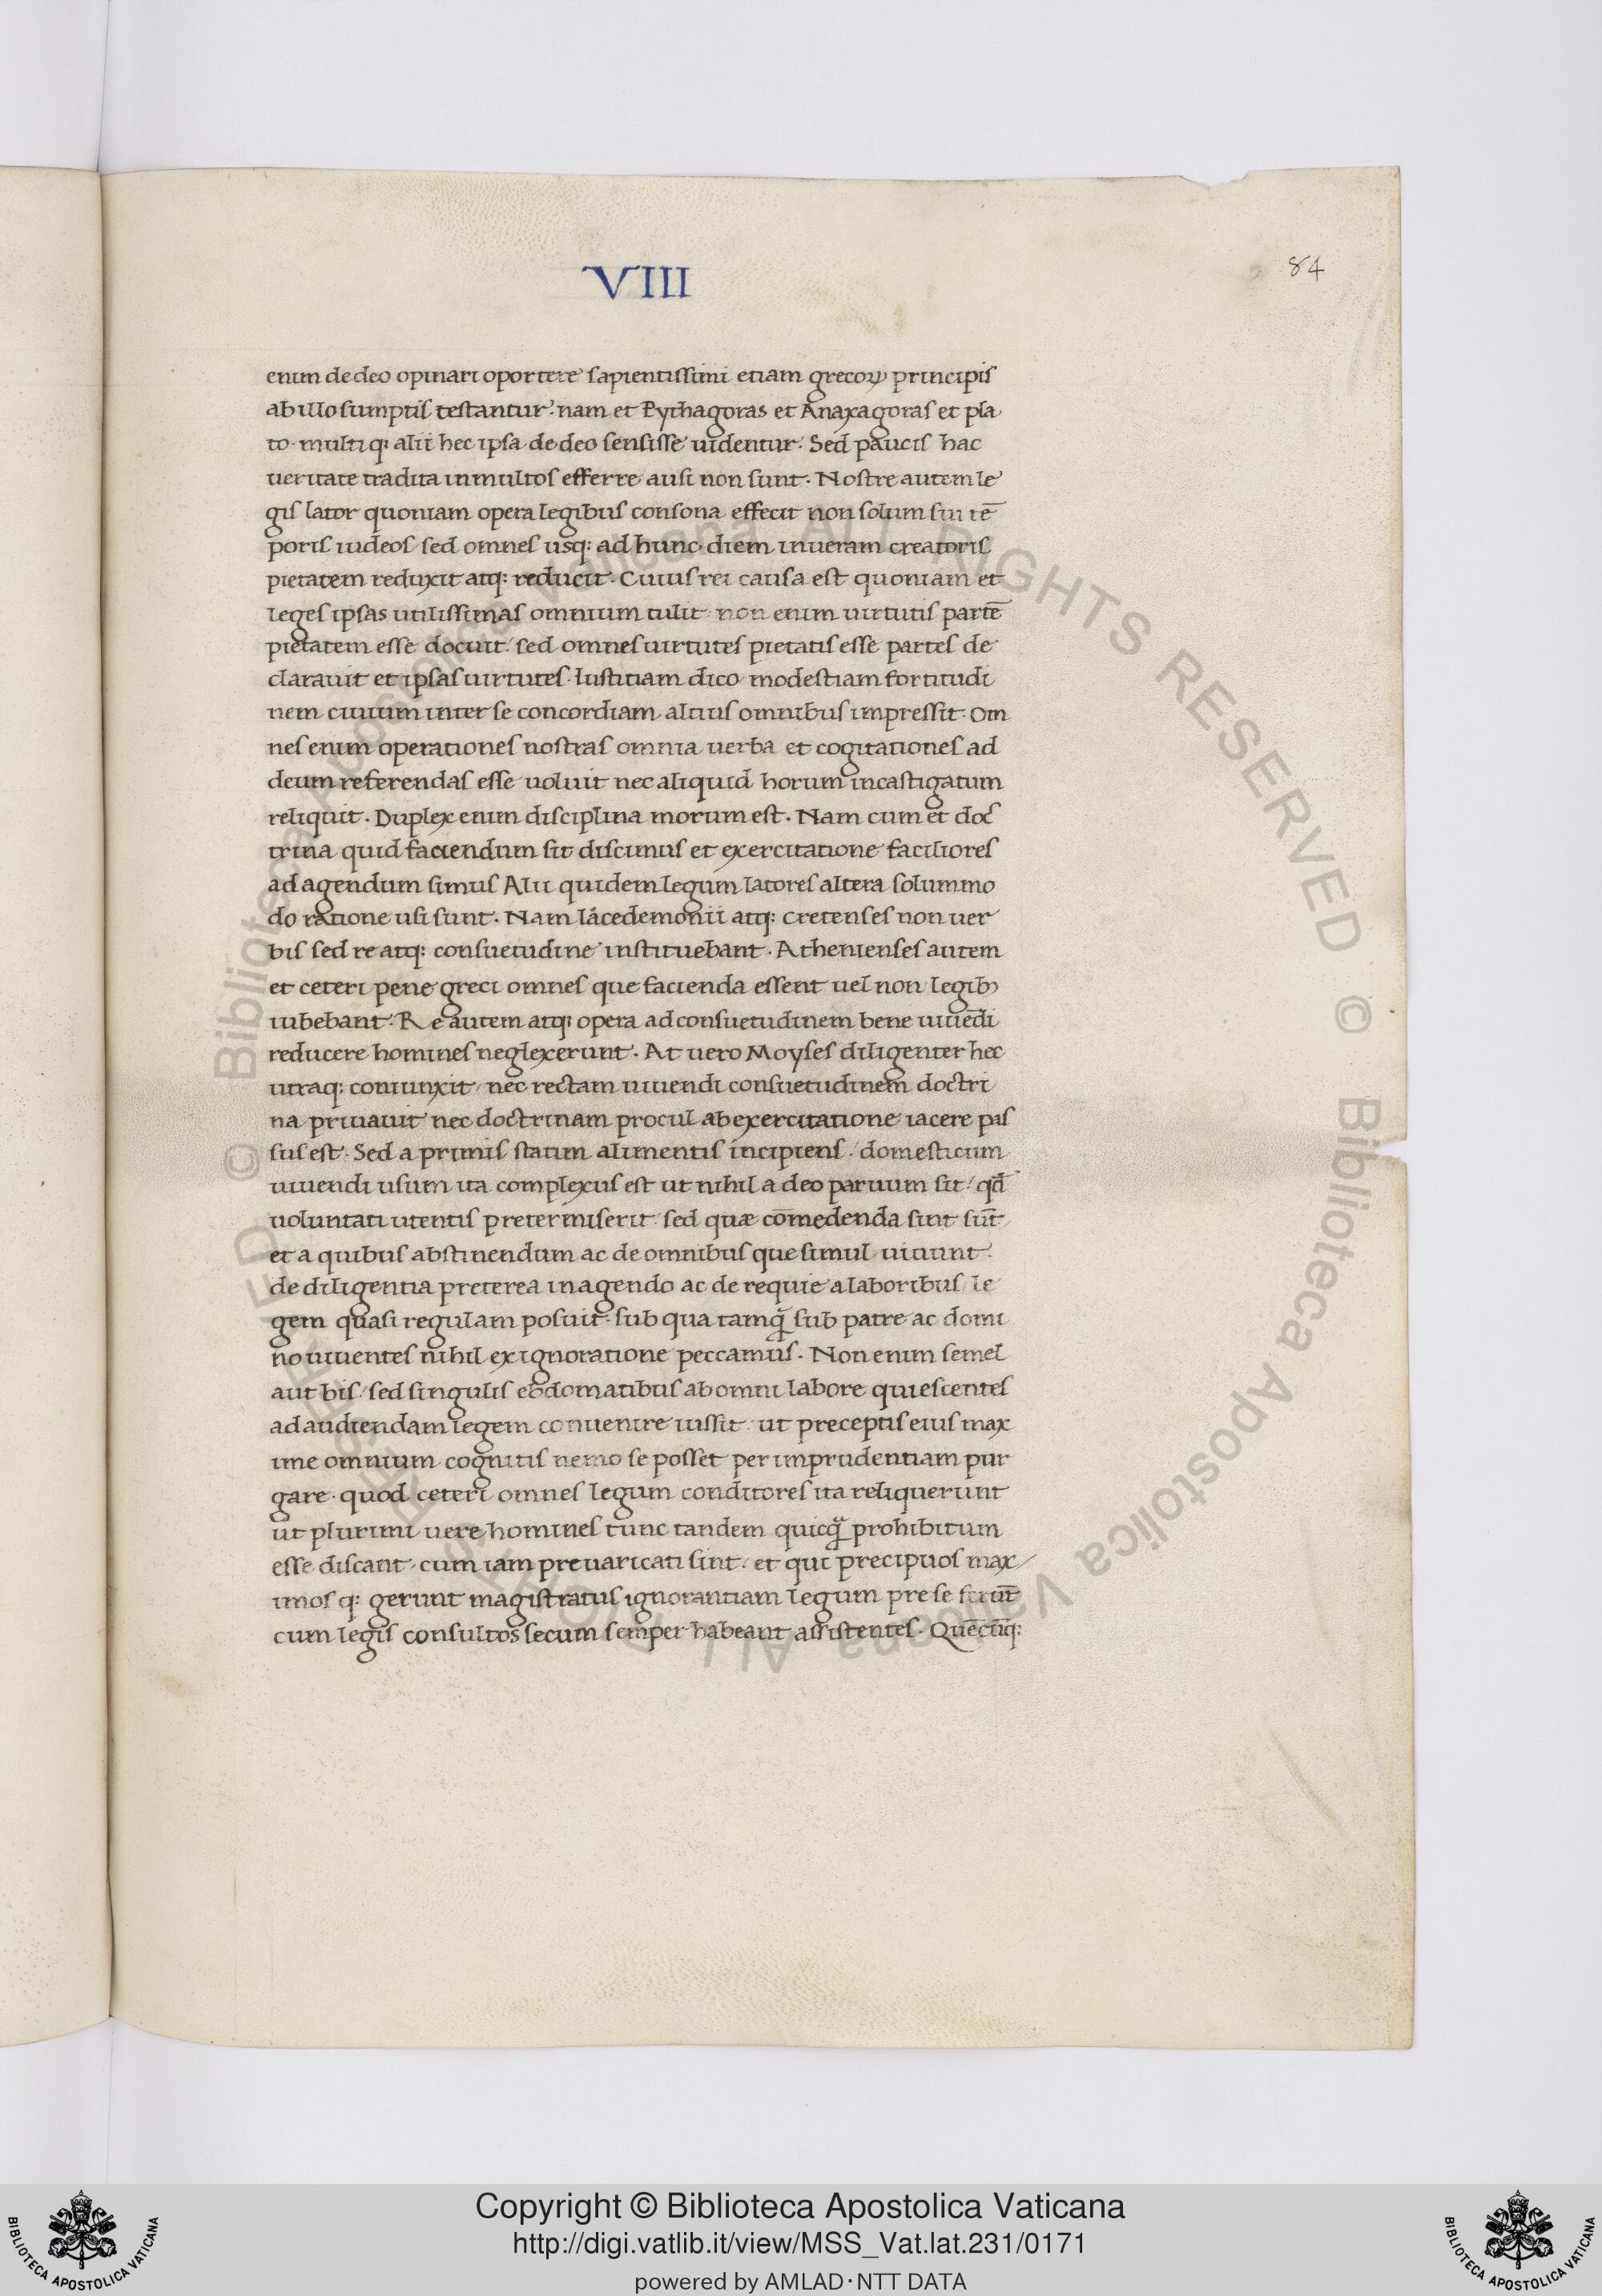 VIII
84
enim de deo opinari oportere sapientissimi etiam grecoꝝ principis
ab illo sumptis testantur. nam et Pythagoras et Anaxagoras et pla
to multi q: alii hec ipsa de deo sensisse uidentur. Sed paucis hac
ueritate tradita in multos efferre ausi non sunt. Nostre autem le
gis lator quoniam opera legibus consona effecit non solum sui tē
poris iudeos sed omnes usq: ad hunc diem in ueram creatoris
pietatem reduxit atq: reducit. Cuius rei causa est quoniam et
leges ipsas utilissimas omnium tulit. non enim uirtutis partē
pietatem esse docuit / sed omnes uirtutes pietatis esse partes de
clarauit et ipsas uirtutes. Iustitiam dico modestiam fortitudi
nem ciuium inter se concordiam altius omnibus impressit. Om
nes enim operationes nostras omnia uerba et cogitationes ad
deum referendas esse uoluit nec aliquid horum incastigatum
reliquit. Duplex enim disciplina morum est. Nam cum et doc
trina quid faciendum sit discimus et exercitatione faciliores
ad agendum simus Alii quidem legum latores altera solummo
do ratione usi sunt. Nam lacedemonii atq: cretenses non uer
bis sed re atq: consuetudine instituebant. Athenienses autem
et ceteri pene greci omnes que facienda essent uel non legibꝫ
iubebant. Re autem atq: opera ad consuetudinem bene uiuēdi
reducere homines neglexerunt. At uero Moyses diligenter hec
utraq: coniunxit / nec rectam uiuendi consuetudinem doctri
na priuauit nec doctrinam procul ab exercitatione iacere pas
sus est. Sed a primis statim alimentis incipiens / domesticum
uiuendi usum ita complexus est ut nihil a deo paruum sit / qd̄
uoluntati utentis pretermiserit / sed quæ cōmedenda sint sūt
et a quibus abstinendum ac de omnibus que simul uiuunt.
de diligentia preterea in agendo ac de requie a laboribus / le
gem quasi regulam posuit. sub qua tamq̄ sub patre ac domi
no uiuentes nihil ex ignoratione peccamus. Non enim semel
aut bis / sed singulis ebdomatibus ab omni labore quiescentes
ad audiendam legem conuenire iussit. ut preceptis eius max
ime omnium cognitis nemo se posset per imprudentiam pur
gare. quod ceteri omnes legum conditores ita reliquerunt
ut plurimi uere homines tunc tandem quicq̄ prohibitum
esse discant. cum iam preuaricati sint. et qui precipuos max
imos q: gerunt magistratus ignorantiam legum pre se ferūt
cum legis consultos secum semper habeant assistentes. Quēcūq:
© Biblioteca Apostolica Vaticana ALL RIGHTS RESERVED © Biblioteca Apostolica Vaticana ALL RIGHTS RESERVED
Copyright © Biblioteca Apostolica Vaticana
http://digi.vatlib.it/view/MSS_Vat.lat.231/0171
powered by AMLAD·NTT DATA
BIBLIOTECA APOSTOLICA VATICANA
BIBLIOTECA APOSTOLICA VATICANA